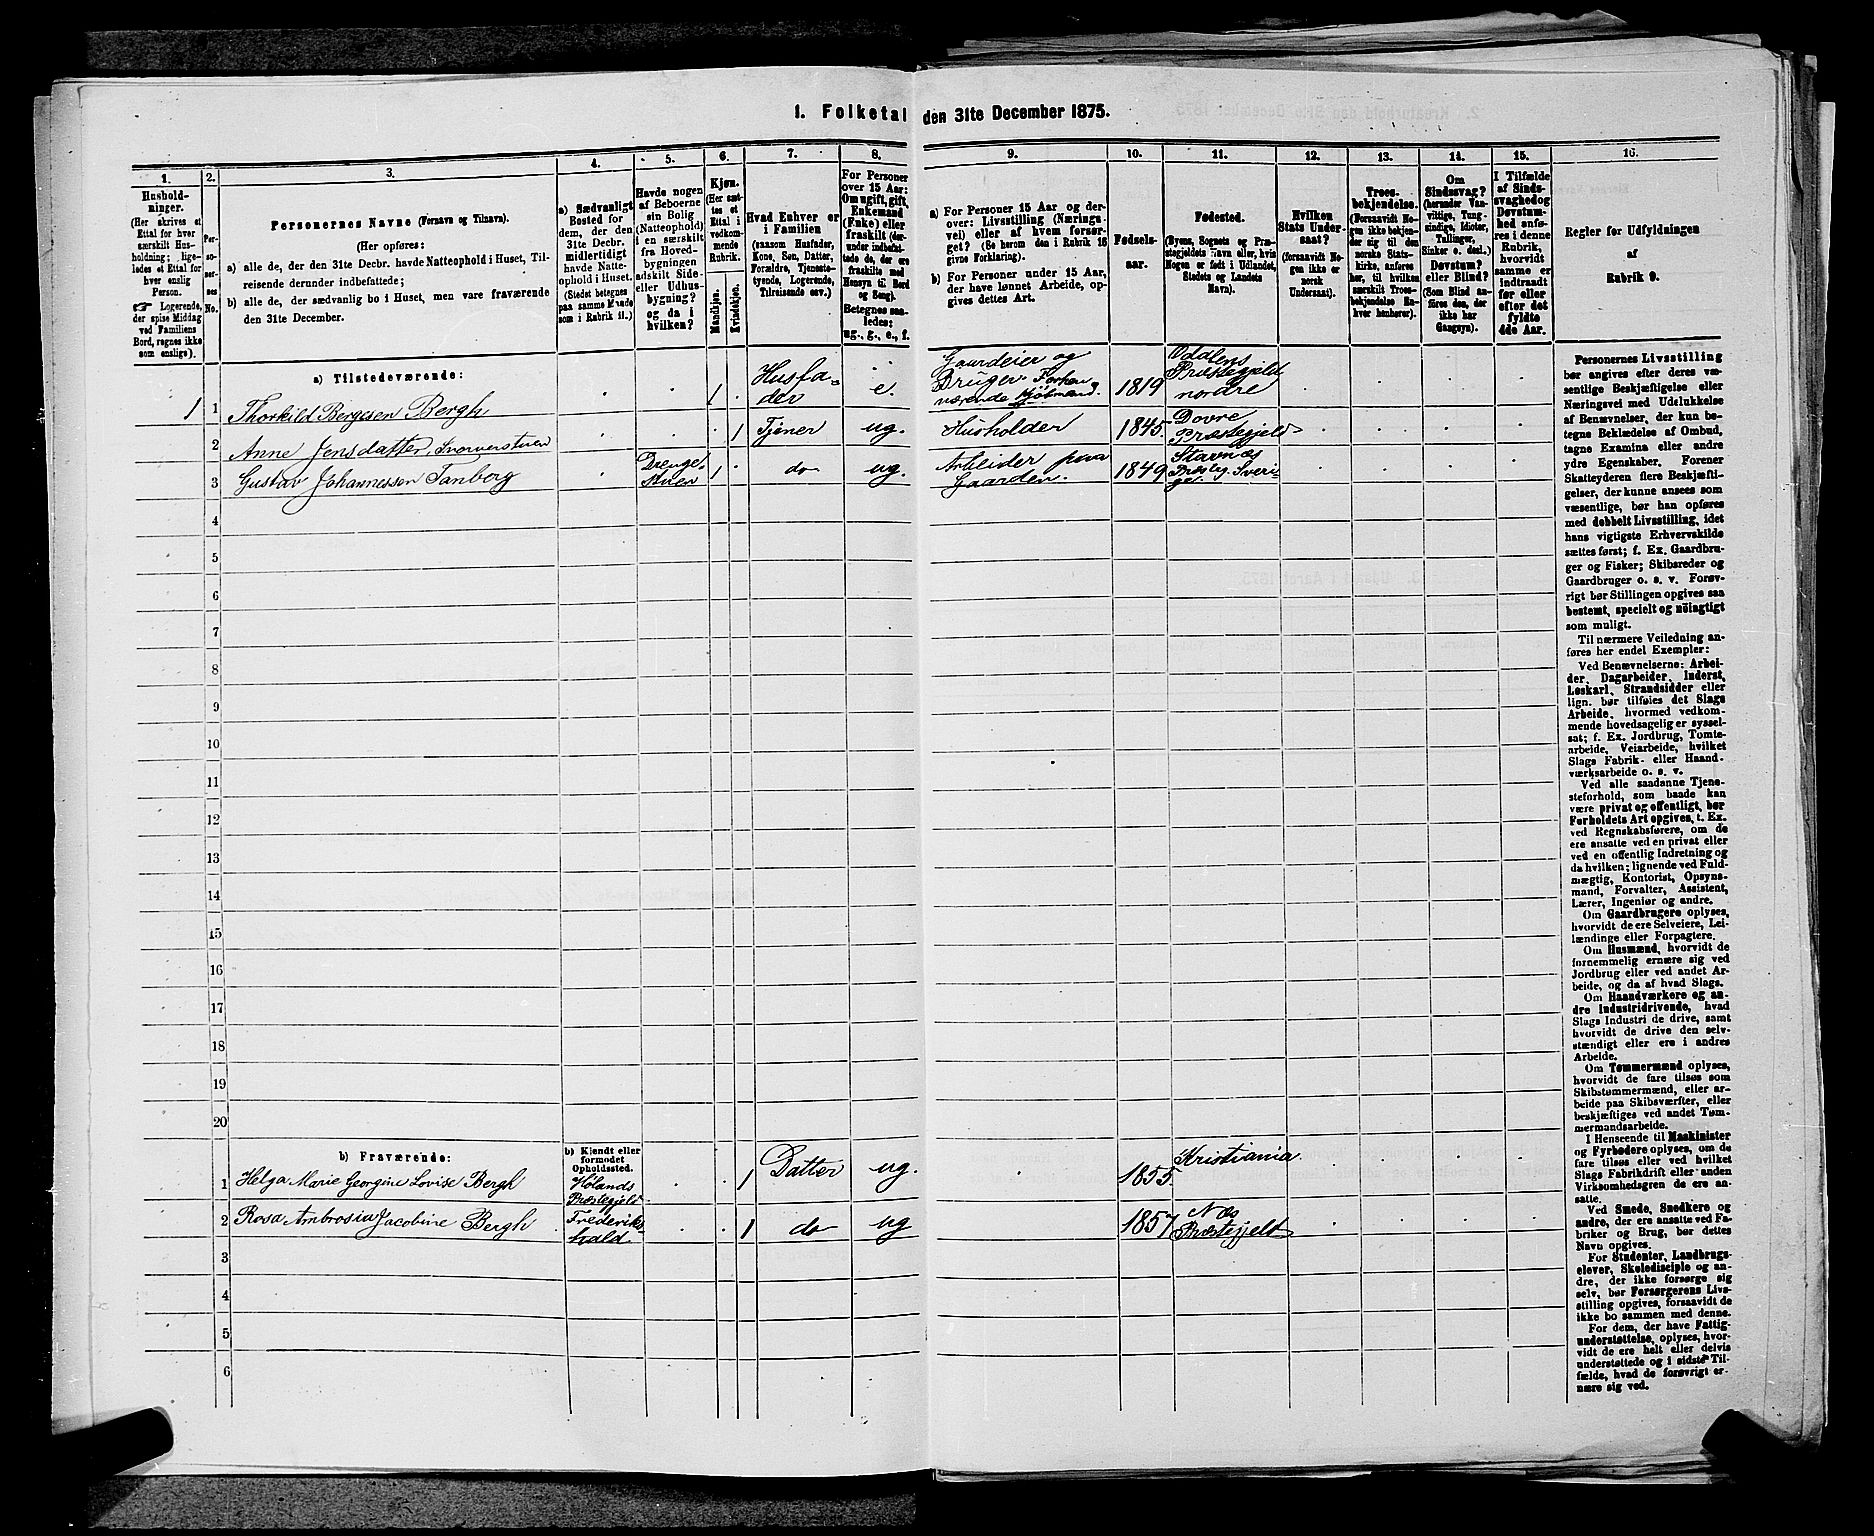 1. Folketal den 31te December 1875.
1.
Husholdninger.
(Her skrives et
Ettal for hver
særskilt Husholdning; ligeledes
et Ettal for
hver enslig
Person.
☞ Logerende,
der spise Middag
ved Familiens
Bord, regnes ikke
som enslige).
2.
Personernes
No.
3.
Personernes Navne (Fornavn og Tilnavn).
(Her opføres:
a) alle de, der den 31te Decbr. havde Natteophold i Huset, Tilreisende derunder indbefattede;
b) alle de, der sædvanlig bo i Huset, men vare fraværende
den 31te December.
4.
a) Sædvanligt
Bosted for
dem, der den
31te Decbr.
midlertidigt
havde Natteophold i Huset.
(Stedet betegnes
paa samme Maade
som i Rubrik 11.)
5.
Havde nogen
af Beboerne
sin Bolig
(Natteophold)
i en særskilt
fra Hovedbygningen
adskilt Side-
eller Udhusbygning?
og da i
hvilken?
6.
Kjøn.
(Her sættes et
Ettal i
vedkommende
Rubrik.
Mandkjøn.
Kvindekjøn.
7.
Hvad Enhver er
i Familien
(saasom Husfader,
Kone, Søn, Datter,
Forældre, Tjenestetyende, Logerende,
Tilreisende osv.)
8.
For Personer
over 15 Aar:
Om ugift, gift,
Enkemand
(Enke) eller
fraskilt (derunder indbefattede de, der ere
fraskilte med
Hensyn til Bord
og Seng).
Betegnes saaledes:
ug., g., e., f.
9.
a) For Personer 15 Aar og derover: Livsstilling (Næringsvei) eller af hvem forsørget? (Se herom den i Rubrik 16
givne Forklaring).
b) For Personer under 15 Aar,
der have lønnet Arbeide, opgives dettes Art.
10.
Fødselsaar.
11.
Fødested.
(Byens, Sognets og Præstegjeldets Navn eller, hvis
Nogen er født i Udlandet,
Stedets og Landets
Navn).
12.
Hvilken
Stats Undersaat?
(forsaavidt Nogen ikke er
norsk
Undersaat).
13.
Troesbekjendelse.
(Forsaavidt Nogen ikke bekjender sig til den
norske Statskirke, anføres
her, til hvilken
særskilt Troesbekjendelse Enhver henhører).
14.
Om
Sindssvag?
(herunder Vanvittige, Tungsindige, Idioter,
Tullinger,
Sinker o. desl.)
Døvstum?
eller Blind?
(Som Blind anføres den, der
ikke har
Gangsyn).
15.
I Tilfælde
af Sindssvaghed og
Døvstumhed anføres i denne
Rubrik,
hvorvidt
samme er
indtraadt
før eller
efter det
fyldte
4de Aar.
16.
Regler før Udfyldningen
af
Rubrik 9.
a) Tilstedeværende:
1 1 Thorkild Bergesen Bergh 1 Husfader e. Gaardeier og Bruger. Forhenværende Kjøbmand. 1819 Oddlens Præstegjeld nordre
2 Anne Jensdatter 1 Tjener ug. Husholder 1845 Dovre Præstegjeld
3 Gustav Johannessen Tanberg Drengestuen 1 do ug. Arbeider paa Gaarden. 1849 Stavnæs Præsteg. Sverige.
4
5
6
7
8
9
10
11
12
13
14
15
16
17
18
19
20
b) Fraværende:
b) Kjendt eller
formodet
Opholdssted.
1 Helga Marie Georgine Lovise Bergh Hølands Præstegjeld 1 Datter ug. 1855 Kristiania
2 Rosa Ambrosia Jacobine Bergh Frederikshald 1 do ug 1857 Næs Præstegjeld
3
4
5
6
Personernes Livsstilling
bør angives efter deres væsentlige Beskjæftigelse eller
Næringsvei med Udelukkelse
af Benævnelser, der kun betegne Beklædelse af Ombud,
tagne Examina eller andre
ydre Egenskaber. Forener
Skatteyderen flere Beskjæftigelser, der kunne ansees som
væsentlige, bør han opføres
med dobbelt Livsstilling, idet
hans vigtigste Erhvervskilde
sættes først; f. Ex. Gaardbruger og Fisker; Skibsreder og
Gaardbruger o. s. v. Forøvrigt bør Stillingen opgives saa
bestemt, specielt og nöiagtigt
som muligt.
Til nærmere Veiledning anføres her endel Exempler:
Ved Benævnelserne: Arbeider, Dagarbeider, Inderst,
Løskarl, Strandsidder eller
lign. bør tilføies det Slags
Arbeide, hvormed vedkommende hovedsagelig er sysselsat; f. Ex. Jordbrug, Tomtearbeide, Veiarbeide, hvilket
Slags Fabrik- eller Haandværksarbeide o. s. v.
Ved alle saadanne Tjenesteforhold, som baade kan
være privat og offentligt, bør
Forholdets Art opgives, t. Ex.
ved Regnskabsførere, om de
ere ansatte ved en privat eller
ved en offentlig Indretning og
da hvilken; lignende ved Fuldmægtig, Kontorist, Opsynsmand, Forvalter, Assistent,
Lærer, Ingeniør og andre.
Om Gaardbrugere oplyses,
hvorvidt de ere Selveiere, Leilændinge eller Forpagtere.
Om Husmænd, hvorvidt de
fornemmelig ernære sig ved
Jordbrug eller ved andet Arbeide, og da af hvad Slags.
Om Haandværkere og andre Industridrivende, hvad
Slags Industri de drive, samt
hvorvidt de drive den selvstændigt eller ere i andres
Arbeide.
Om Tømmermænd oplyses,
hvorvidt de fare tilsøs som
Skibstømmermænd, eller arbeide paa Skibsværfter, eller
beskjæftiges ved andet Tømmermandsarbeide.
I Henseende til Maskinister
og Fyrbødere oplyses, om de
fare tilsøs eller ved hvilket
Slags Fabrikdrift eller anden
Virksomhedsgren de ere ansatte.
Ved Smede, Snedkere og
andre, der ere ansatte ved Fabriker og Brug, bør dettes
Navn opgives.
For Studenter, Landbrugselever, Skoledisciple og andre, der ikke forsørge sig
selv, bør Forsørgerens Livsstilling opgives, forsaavidt de
ikke bo sammen med denne.
For dem, der have Fattigunderstøttelse, oplyses, hvorvidt de ere helt eller delvis
understøttede og i sidste Tilfælde, hvad de forøvrigt ernære sig ved.